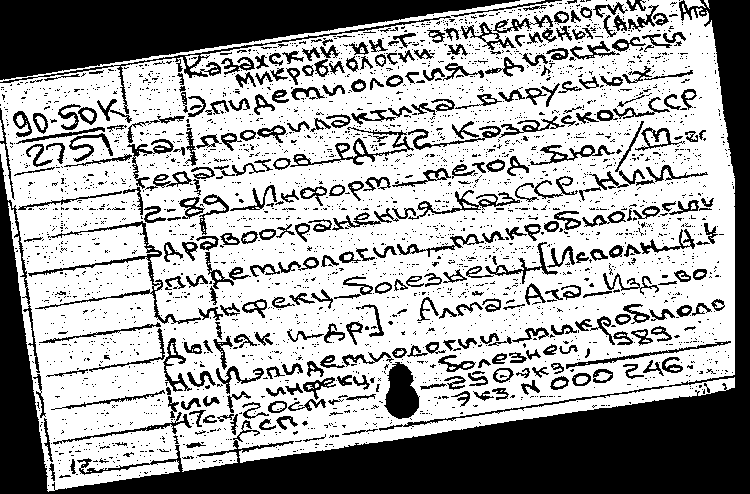 Казахский ин-т эпидемиологии,
микробиологии и гигиены (Алма-Ата)
90-50К
2751
Эпидемиология, диагности
ка, профилактика вирусных
гепатитов РД-42 Казахской ССР
г-89: Информ.-метод. бюл. / М-во
здравоохранения КазССР, НИИ
эпидемиологии, микробиологии
и инфекц. болезней; [Исполн. А.К
Дыняк и др.]. - Алма-Ата: Изд-во
НИИ эпидемиологии, микробиоло
гии и инфекц. болезней, 1989. -
47с.; 20см. - 250 экз.
ДСП. Экз. N 000 246.
12